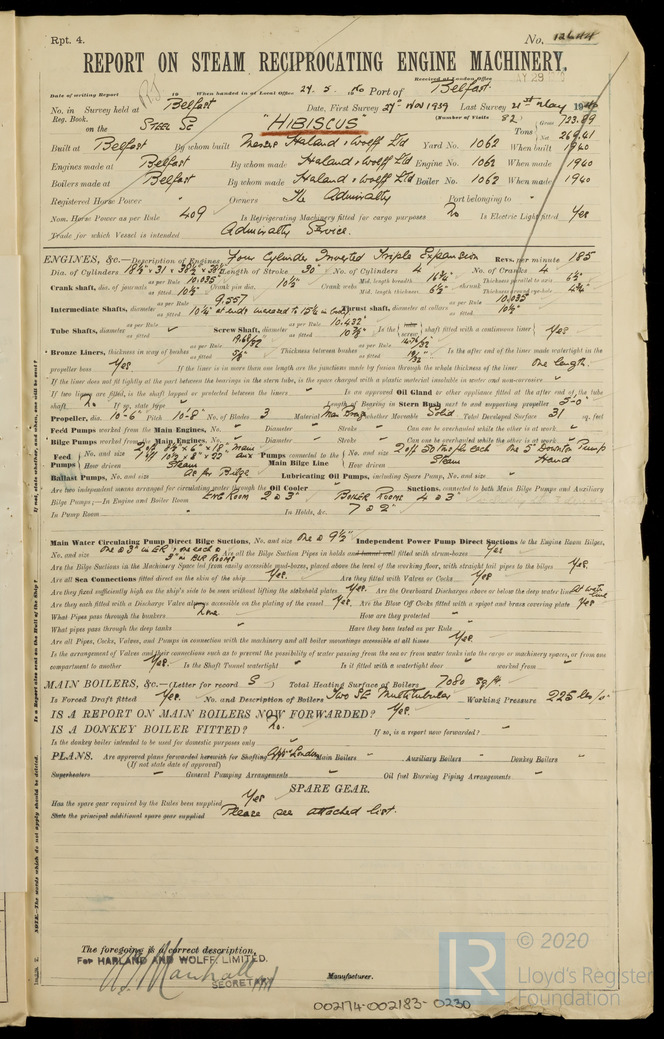 Rpt. 4.
No. 12644
REPORT ON STEAM RECIPROCATING ENGINE MACHINERY.
Received at London Office MAY 29
Date of writing Report 19 When handed in at Local Office 24. 5. 40 Port of Belfast
No. in Survey held at Belfast Date, First Survey 27th Nov 1939 Last Survey 21st May 1940
Reg. Book. (Number of Visits 82)
on the Steel SC "HIBISCUS" Tons Gross 723.89 Net 269.41
Built at Belfast By whom built Messrs Harland & Wolff Ltd Yard No. 1062 When built 1940
Engines made at Belfast By whom made Harland & Wolff Ltd Engine No. 1062 When made 1940
Boilers made at Belfast By whom made Harland & Wolff Ltd Boiler No. 1062 When made 1940
Registered Horse Power " Owners The Admiralty Port belonging to "
Nom. Horse Power as per Rule 409 Is Refrigerating Machinery fitted for cargo purposes No Is Electric Light fitted Yes
Trade for which Vessel is intended Admiralty Service.
ENGINES, &c.—Description of Engines Four Cylinder Inverted Triple Expansion Revs. per minute 185
Dia. of Cylinders 18½" x 31 x 38½ x 38½ Length of Stroke 30" No. of Cylinders 4 No. of Cranks 4
Crank shaft, dia. of journals as per Rule 10.035" as fitted 10½" Crank pin dia. 10½" Crank webs Mid. length breadth 16¾" Mid. length thickness 6½" shrunk Thickness parallel to axis 6½" Thickness around eye-hole
Intermediate Shafts, diameter as per Rule 9.557 as fitted Thrust shaft, diameter at collars as per Rule 10.035 as fitted 10½"
Tube Shafts, diameter as per Rule as fitted Screw Shaft, diameter as per Rule 10.432 as fitted Is the tube screw shaft fitted with a continuous liner Yes
Bronze Liners, thickness in way of bushes as per Rule as fitted Thickness between bushes as per Rule as fitted Is the after end of the liner made watertight in the
propeller boss Yes If the liner is in more than one length are the junctions made by fusion through the whole thickness of the liner One length.
If the liner does not fit tightly at the part between the bearings in the stern tube, is the space charged with a plastic material insoluble in water and non-corrosive
If two liners are fitted, is the shaft lapped or protected between the liners Is an approved Oil Gland or other appliance fitted at the after end of the tube
shaft No If so, state type Length of Bearing in Stern Bush next to and supporting propeller 5'-0"
Propeller, dia. 10'-6" Pitch 10'-8" No. of Blades 3 Material whether Moveable Solid Total Developed Surface 31 sq. feet
Feed Pumps worked from the Main Engines, No. Diameter Stroke Can one be overhauled while the other is at work
Bilge Pumps worked from the Main Engines, No. Diameter Stroke Can one be overhauled while the other is at work
Feed Pumps No. and size 2 off 8½" x 6" x 18" main Pumps connected to the Main Bilge Line No. and size 2 off 50 tons/hr each One 5" Downton Pump
How driven Steam How driven Steam Hand
Ballast Pumps, No. and size As for Bilge Lubricating Oil Pumps, including Spare Pump, No. and size
Are two independent means arranged for circulating water through the Oil Cooler Suctions, connected to both Main Bilge Pumps and Auxiliary
Bilge Pumps;—In Engine and Boiler Room Eng Room 2 @ 3" Boiler Rooms 4 @ 3"
In Pump Room In Holds, &c. 7 @ 2"
Main Water Circulating Pump Direct Bilge Suctions, No. and size One @ 9½" Independent Power Pump Direct Suctions to the Engine Room Bilges,
No. and size One @ 3" in ER & one each @ 3" in BLR Rooms Are all the Bilge Suction Pipes in holds and tunnel well fitted with strum-boxes Yes
Are the Bilge Suctions in the Machinery Space led from easily accessible mud-boxes, placed above the level of the working floor, with straight tail pipes to the bilges Yes.
Are all Sea Connections fitted direct on the skin of the ship Yes. Are they fitted with Valves or Cocks Yes
Are they fixed sufficiently high on the ship's side to be seen without lifting the stokehold plates Yes. Are the Overboard Discharges above or below the deep water line At water line
Are they each fitted with a Discharge Valve always accessible on the plating of the vessel Yes. Are the Blow Off Cocks fitted with a spigot and brass covering plate Yes
What Pipes pass through the bunkers None How are they protected
What pipes pass through the deep tanks Have they been tested as per Rule
Are all Pipes, Cocks, Valves, and Pumps in connection with the machinery and all boiler mountings accessible at all times Yes.
Is the arrangement of Valves and their connections such as to prevent the possibility of water passing from the sea or from water tanks into the cargo or machinery spaces, or from one
compartment to another Yes. Is the Shaft Tunnel watertight Is it fitted with a watertight door worked from
MAIN BOILERS, &c.—(Letter for record S) Total Heating Surface of Boilers 7080 sq ft
Is Forced Draft fitted Yes. No. and Description of Boilers Two SE Multitubular Working Pressure 225 lbs/□"
IS A REPORT ON MAIN BOILERS NOW FORWARDED? Yes.
IS A DONKEY BOILER FITTED? No. If so, is a report now forwarded?
Is the donkey boiler intended to be used for domestic purposes only
PLANS. Are approved plans forwarded herewith for Shafting Appd London Main Boilers Auxiliary Boilers Donkey Boilers
(If not state date of approval)
Superheaters General Pumping Arrangements Oil fuel Burning Piping Arrangements
SPARE GEAR.
Has the spare gear required by the Rules been supplied Yes
State the principal additional spare gear supplied Please see attached list.
The foregoing is a correct description,
For HARLAND AND WOLFF, LIMITED.
Marshall
SECRETARY
Manufacturer.
002174-002183-0230
© 2020
LR Lloyd's Register
Foundation
Is a Report also sent on the Hull of the Ship?
If not, state whether, and when, one will be sent?
NOTE.—The words which do not apply should be deleted.